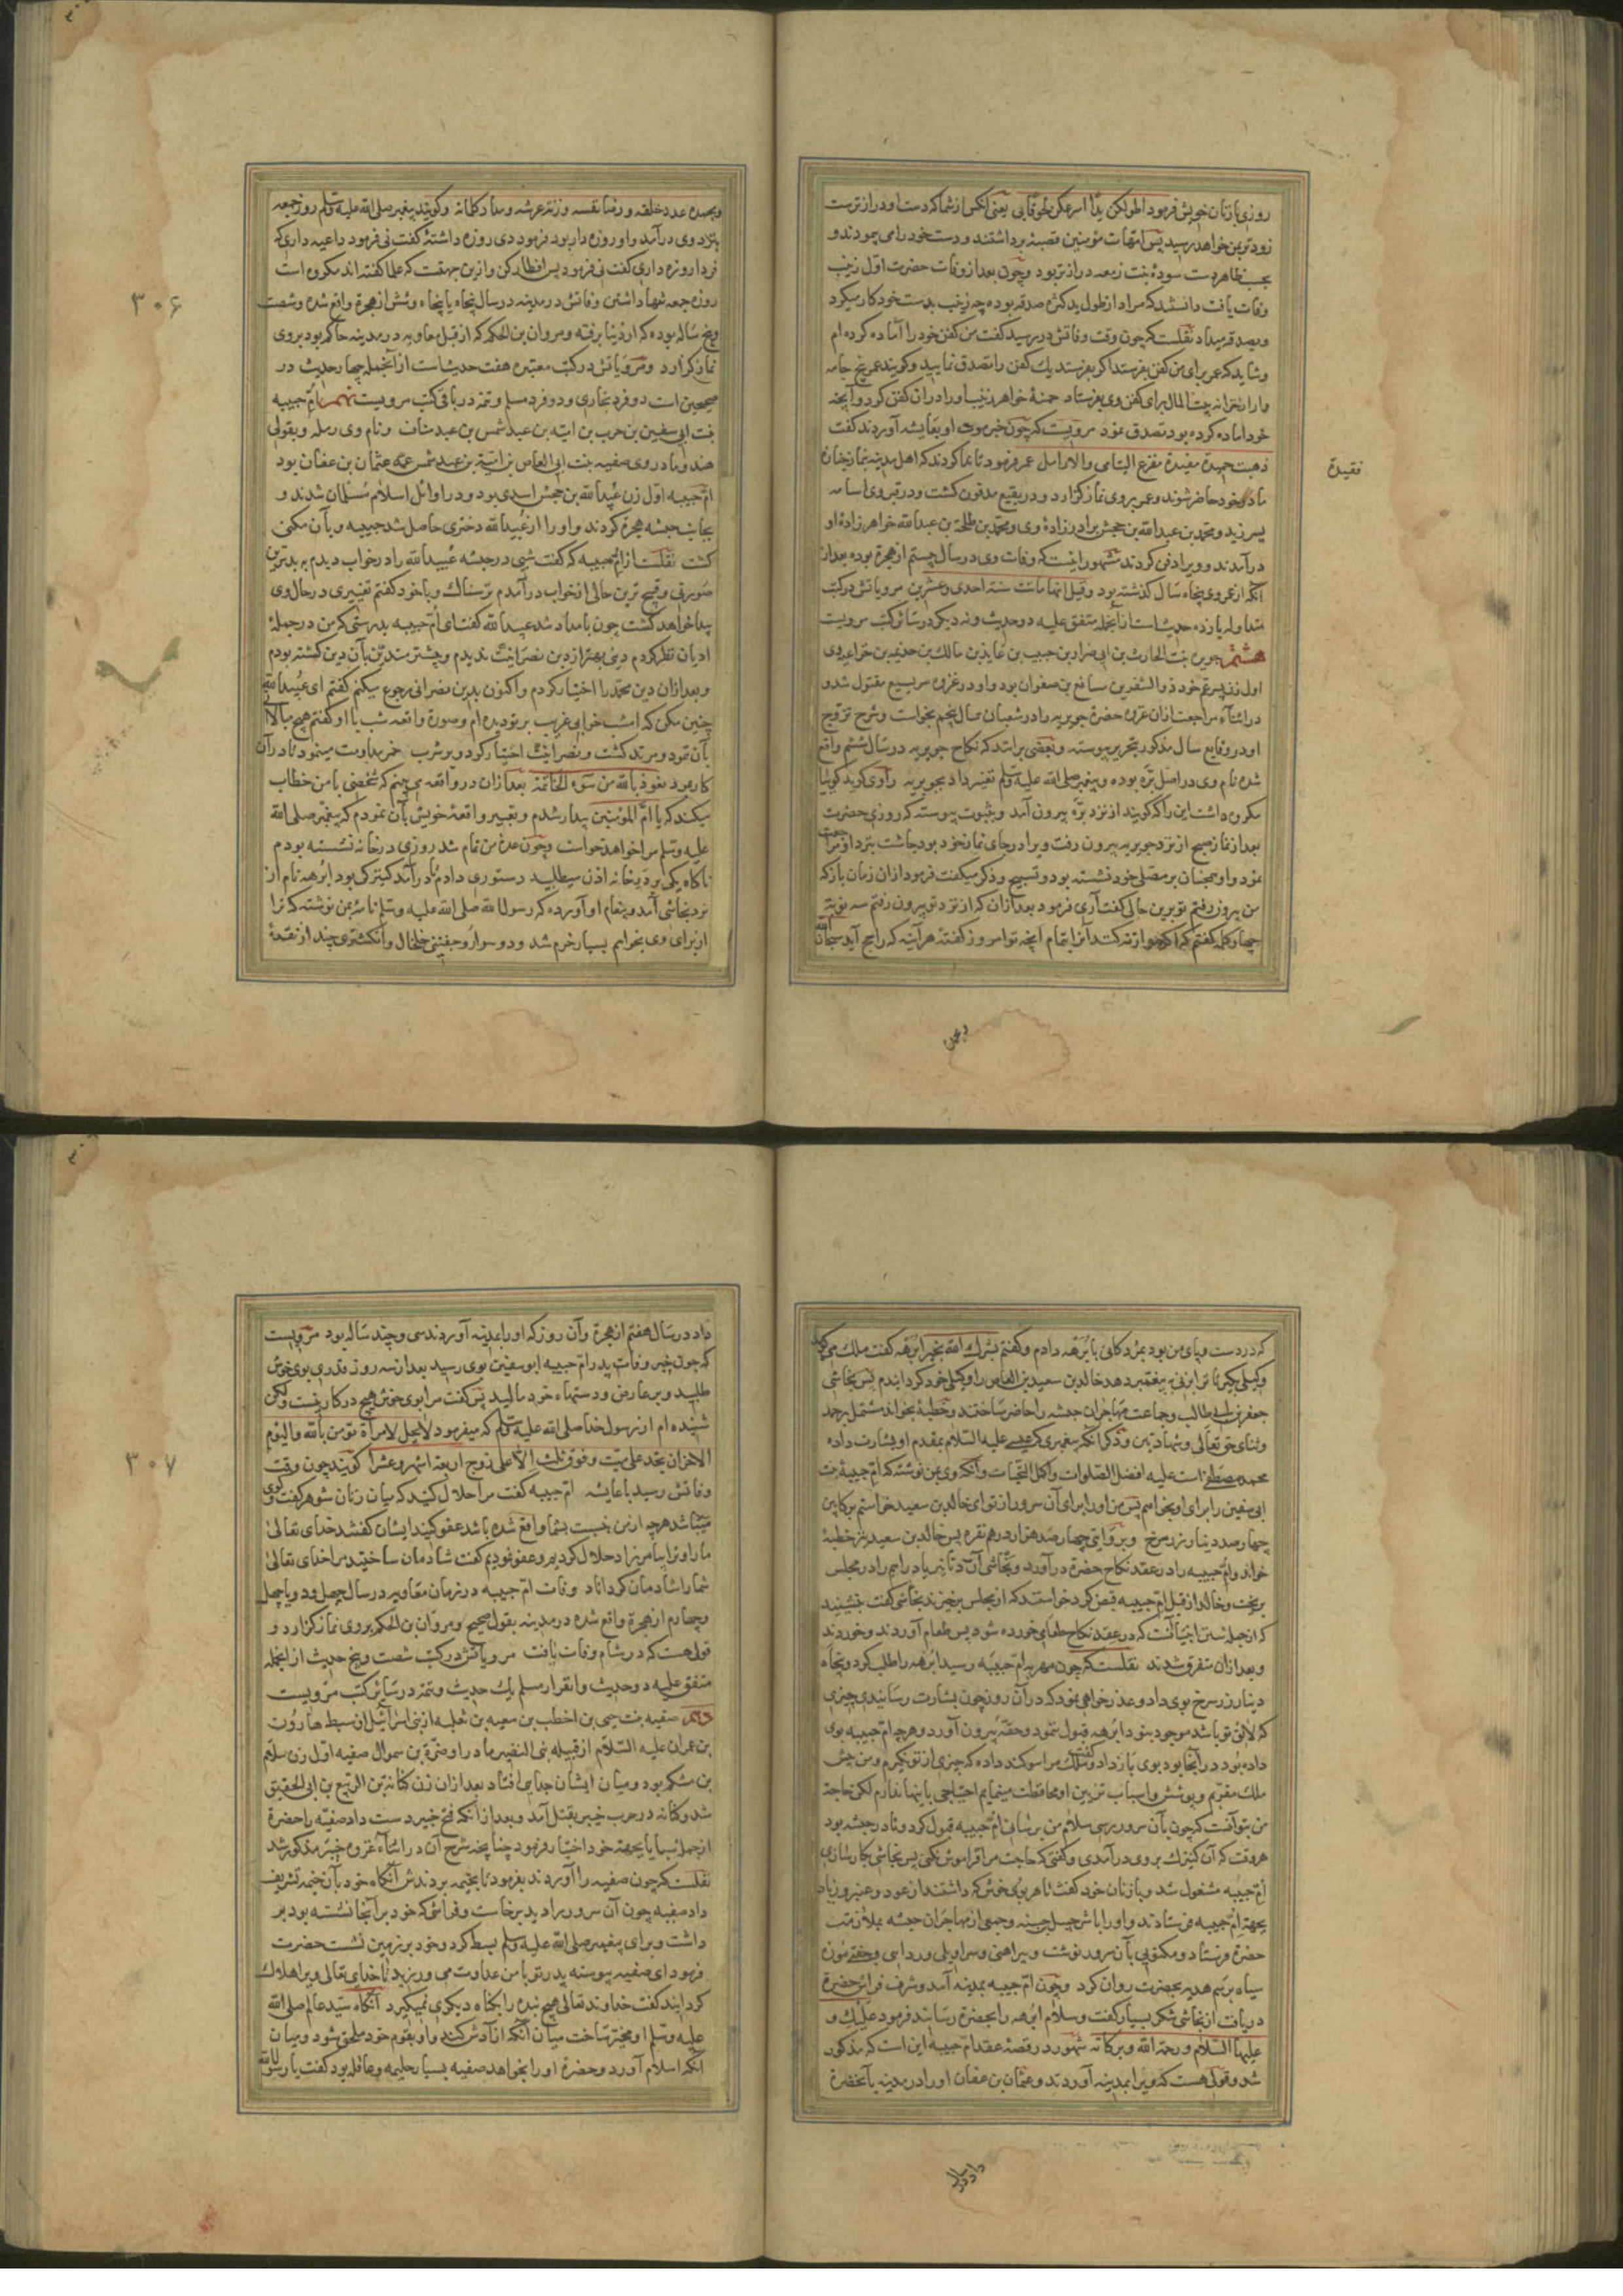 روزی با زنان خویش فرمود اطولکن یدا اسرعکن لحوقا بی یعنی آنکس از شما که دست او درازترست
زودتر بمن خواهد رسید پس امهات مؤمنین قصبهٔ برداشتند و دست خود را می پیمودند و
بحسب ظاهر دست سودهٔ بنت زمعه درازتر بود و چون بعد از وفات حضرت اول زینب
وفات یافت دانستند که مراد از طول ید کثرة صدقه بوده چه زینب بدست خود کار میکرد
و بصدقه میداد نقلست که چون وقت وفاتش در رسید گفت من کفن خود را آماده کرده ام
و شاید که عمر برای من کفن بفرستد اگر بفرستد یک کفن را تصدق نمایید و گویند عمر پنج جامه
وار از خزانه بیت المال برای کفن وی بفرستاد حمنهٔ خواهر زینب او را در ان کفن کرد و آنچه
خود اماده کرده بود تصدق نمود مرویست که چون خبر موت او بعایشه آوردند گفت
ذهبت حمیدة مفیدة مفزع الیتامی والارامل عمر فرمود تا ندا کردند که اهل مدینه بنماز جنازهٔ
فقیدة
مادر خود حاضر شوند و عمر بر وی نماز گزارد و در بقیع مدفون گشت و در قبر وی اسامه
بن زید و محمد بن عبدالله بن جحش برادرزادهٔ وی و محمد بن طلحة بن عبدالله خواهرزادهٔ او
در آمدند و ویرا دفن کردند مشهور اینست که وفات وی در سال بیستم از هجرة بوده بعد از
آنکه از عمر وی پنجاه سال گذشته بود و قیل انها ماتت سنة احدی و عشرین مرویاتش در کتب
متداوله یازده حدیث است از آنجمله متفق علیه دو حدیث و نه دیگر در سائر کتب مرویست
هشتم جویریه بنت الحارث بن ابی ضرار بن حبیب بن عاید بن مالک بن جذیمه بن خزاعه وی
اول زن پسر عم خود ذو الشفرین مسافع بن صفوان بود و او در غزوهٔ مریسیع مقتول شد و
در اثناء مراجعت از ان غزوه حضرة جویریه را در شعبان سال پنجم بخواست و شرح تزویج
او در وقایع سال مذکور بتحریر پیوسته و بعضی برانند که نکاح جویریه در سال ششم واقع
شده نام وی در اصل بره بوده و پیغمبر صلی الله علیه وسلم تغییر داد بجویریه راوی گوید گوئیا
مکروه داشت این را که گویند از نزد بره بیرون آمد و بثبوت پیوسته که روزی حضرت
بعد از نماز صبح از نزد جویریه بیرون رفت و ویرا در جای نماز خود بود چاشت بنزد او مراجعت
نمود و او همچنان بر مصلی خود نشسته بود و تسبیح و ذکر میگفت فرمود از ان زمان باز که
من بیرون رفتم تو برین حالی گفت آری فرمود بعد از ان که از نزد تو بیرون رفتم سه نوبت
چهار کلمه گفتم که اگر وزنه کنند آنرا با تمام آنچه تو امروز گفتهٔ هر آینه که راجح آید سبحان الله
وبحمده
وبحمده عدد خلقه و رضا نفسه وزنة عرشه ومداد کلماته و گویند پیغمبر صلی الله علیه وسلم روز جمعه
بنزد وی درآمد و او روزه دار بود فرمود دی روزه داشتهٔ گفت نی فرمود داعیه داری که
فردا روزه داری گفت نی فرمود پس افطار کن و ازین جهتست که علما گفته اند مکروه است
روزهٔ جمعه تنها داشتن وفاتش در مدینه در سال پنجاه یا پنجاه و شش از هجرة واقع شده و شصت
۳۰۶
و پنج ساله بوده که از دنیا برفته و مروان بن الحکم که از قبل معاویه در مدینه حاکم بود بر وی
نماز گزارد و مرویاتش در کتب معتبره هفت حدیث است از آنجمله چهار حدیث در
صحیحین است دو فرد بخاری و دو فرد مسلم و تتمه در باقی کتب مرویست نهم ام حبیبه
بنت ابی سفین بن حرب بن امیه بن عبد شمس بن عبد مناف و نام وی رمله و بقولی
هند و مادر وی صفیه بنت ابی العاص بن امیة بن عبد شمس عمه عثمان بن عفان بود
ام حبیبه اول زن عبیدالله بن جحش اسدی بود و در اوائل اسلام مسلمان شدند و
بجانب حبشه هجرة کردند و او را از عبیدالله دختری حاصل شد حبیبه و بآن مکنی
گشت نقلست از ام حبیبه که گفت شبی در حبشه عبیدالله را در خواب دیدم به بدترین
صورتی و قبیح ترین حالی از خواب درآمدم ترسناک و با خود گفتم تغییری در حال وی
پیدا خواهد گشت چون بامداد شد عبیدالله گفت ای ام حبیبه بدرستی که من در جملهٔ
ادیان نظر کردم دینی بهتر از دین نصرانیت ندیدم و پیشتر متدین بآن دین گشته بودم
و بعد از ان دین محمد را اختیار کردم و اکنون بدین نصرانی رجوع میکنم گفتم ای عبیدالله
چنین مکن که امشب خوابی غریب بر تو دیده ام و صورة واقعه شب با او گفتم هیچ مبالاة
بآن ننمود و مرتد گشت و نصرانیت اختیار کرد و بر شرب خمر مداومت مینمود تا در آن
کار بمرد نعوذ بالله من سوء الخاتمة بعد از ان در واقعه می بینم که شخصی با من خطاب
میکند که یا ام المؤمنین بیدار شدم و تعبیر واقعهٔ خویش بآن نمودم که پیغمبر صلی الله
علیه وسلم مرا خواهد خواست و چون عدهٔ من تمام شد روزی در خانه نشسته بودم
ناگاه یکی بر در خانه اذن میطلبید دستوری دادم تا درآمد کنیزکی بود ابرهه نام از
نزد نجاشی آمد و پیغام او آورده که رسول الله صلی الله علیه وسلم نامه بمن نوشته که ترا
از برای وی بخواهم بسیار خرم شد و دو سوار و جفتی خلخال و انگشتری چند از نقدهٔ
که در دست و پای من بود بمژدگانی بابرهه دادم و گفتم بشرک الله بخیر ابرهه گفت ملک می گوید
وکیلی بگیر تا ترا بزنی به پیغمبر دهد خالد بن سعید بن العاص را وکیل خود گردانیدم پس نجاشی
جعفر بن ابی طالب و جماعت مهاجران حبشه را حاضر ساختند و خطبهٔ بخواند مشتمل بر حمد
و ثنای حق تعالی و شهادتین و ذکر آنکه پیغمبری که عیسی علیه السلام بمقدم او بشارت داده
محمد مصطفی است علیه افضل الصلوات و اکمل التحیات و آنکه وی بمن نوشته که ام حبیبهٔ بنت
ابی سفین را برای او بخواهم پس من او را برای آن سرور از تو ای خالد بن سعید خواستم بکابین
چهارصد دینار زر سرخ و بروایتی چهارصد هزار درهم نقره پس خالد بن سعید نیز خطبهٔ
خواند و ام حبیبه را در عقد نکاح حضرة درآورد و نجاشی آن دنانیر یا دراهم را در مجلس
بریخت و خالد از قبل ام حبیبه قبض کرد خواستند که از مجلس برخیزند نجاشی گفت بنشینید
که از جمله سنن انبیا آنست که در عقد نکاح طعامی خورده شود پس طعام آوردند و خوردند
و بعد از ان متفرق شدند نقلست که چون مهر به ام حبیبه رسید ابرهه را طلب کرد و پنجاه
دینار زر سرخ بوی داد و عذرخواهی نمود که در آن روز چون بشارت رسانیدی چیزی
که لائق تو باشد موجود نبود ابرهه قبول ننمود و حقهٔ بیرون آورد و هرچه ام حبیبه بوی
داده بود در آنجا بود بوی باز داد و گفت ملک مرا سوگند داده که چیزی از تو نگیرم و من پیش
ملک مقربم و پوشش و اسباب تزیین او محافظت مینمایم احتیاجی باینها ندارم لکن حاجة
من بتو آنست که چون بآن سرور برسی سلام من برسانی ام حبیبه قبول کرد و تا در حبشه بود
هر وقت که آن کنیزک بر وی درآمدی و گفتی که حاجت مرا فراموش نکنی پس نجاشی بکارسازی
ام حبیبه مشغول شد و با زنان خود گفت تا هر بوی خوش که داشتند از عود و عنبر و زیاد
بجهة ام حبیبه فرستادند و او را با شرحبیل حسنه و جمعی از مهاجران حبشه بملازمت
حضرة فرستاد و مکتوبی بآن سرور نوشت و پیراهنی و سراویلی و ردایی و جفتی موزه
سیاه برسم هدیه بحضرت روان کرد و چون ام حبیبه بمدینه آمد و شرف فراش حضرة
دریافت از نجاشی شکر بسیار گفت و سلام ابرهه را بحضرة رسانید فرمود علیک و
علیها السلام و رحمة الله وبرکاته مشهور در قصهٔ عقد ام حبیبه این است که مذکور
شد و قولی هست که ویرا بمدینه آوردند و عثمان بن عفان او را در مدینه بآنحضرة
داد در سال
داد در سال هفتم از هجرة و آن روز که او را بمدینه آوردند سی و چند ساله بود مرویست
که چون خبر وفات پدر ام حبیبه ابوسفین بوی رسید بعد از سه روز قدری بوی خوش
طلبید و بر عارض و دستهاء خود مالید پس گفت مرا بوی خوش هیچ در کار نیست ولکن
شنیده ام از رسول خدا صلی الله علیه وسلم که میفرمود لایحل لامرأة تؤمن بالله والیوم
الاخر ان تحد علی میت فوق ثلث الا علی زوج اربعة اشهر و عشرا گویند چون وقت
۳۰۷
وفاتش رسید با عایشه ام حبیبه گفت مرا حلال کنید که میان زنان شوهر گفت و گوی
میباشد هرچه از من نسبت بشما واقع شده باشد عفو کنید ایشان گفتند خدای تعالی
ما را و ترا بیامرزاد حلال کردیم و عفو نمودیم گفت شادمان ساختید مرا خدای تعالی
شما را شادمان گرداناد وفات ام حبیبه در زمان معاویه در سال چهل و دو یا چهل
و چهارم از هجرة واقع شده در مدینه بقول صحیح و مروان بن الحکم بر وی نماز گزارد و
قولی هست که در شام وفات یافت مرویاتش در کتب شصت و پنج حدیث از انجمله
متفق علیه دو حدیث و انفراد مسلم بیک حدیث و تتمه در سائر کتب مرویست
دهم صفیه بنت حیی بن اخطب بن سعیه بن ثعلبه از بنی اسرائیل از سبط هارون
بن عمران علیه السلام از قبیله بنی النضیر مادر او ضرة بن سموال صفیه اول زن سلام
بن مشکم بود و میان ایشان جدایی افتاد بعد از ان زن کنانه بن الربیع بن ابی الحقیق
شد و کنانه در حرب خیبر بقتل آمد و بعد از آنکه فتح خیبر دست داد صفیه را حضرة
از جمله سبایا بجهة خود اختیار فرمود چنانچه شرح آن در اثناء غزوه خیبر مذکور شد
نقلست که چون صفیه را آوردند بفرمود تا بخیمه بردندش آنگاه خود بآن خیمه تشریف
داد صفیه چون آن سرور را دید برخاست و فراشی که خود بر آنجا نشسته بود بر
داشت و برای پیغمبر صلی الله علیه وسلم بسط کرد و خود بر زمین نشست حضرت
فرمود ای صفیه پیوسته پدر تو با من عداوت می ورزید تا خدای تعالی ویرا هلاک
گردانید گفت خداوند تعالی هیچ بنده را بگناه دیگری نمیگیرد آنگاه سید عالم صلی الله
علیه وسلم او مخیر ساخت میان آنکه آزادش کند و او بقوم خود ملحق شود و میان
آنکه اسلام آورد و حضرة او را بخواهد صفیه بسیار حلیمه و عاقله بود گفت یا رسول الله